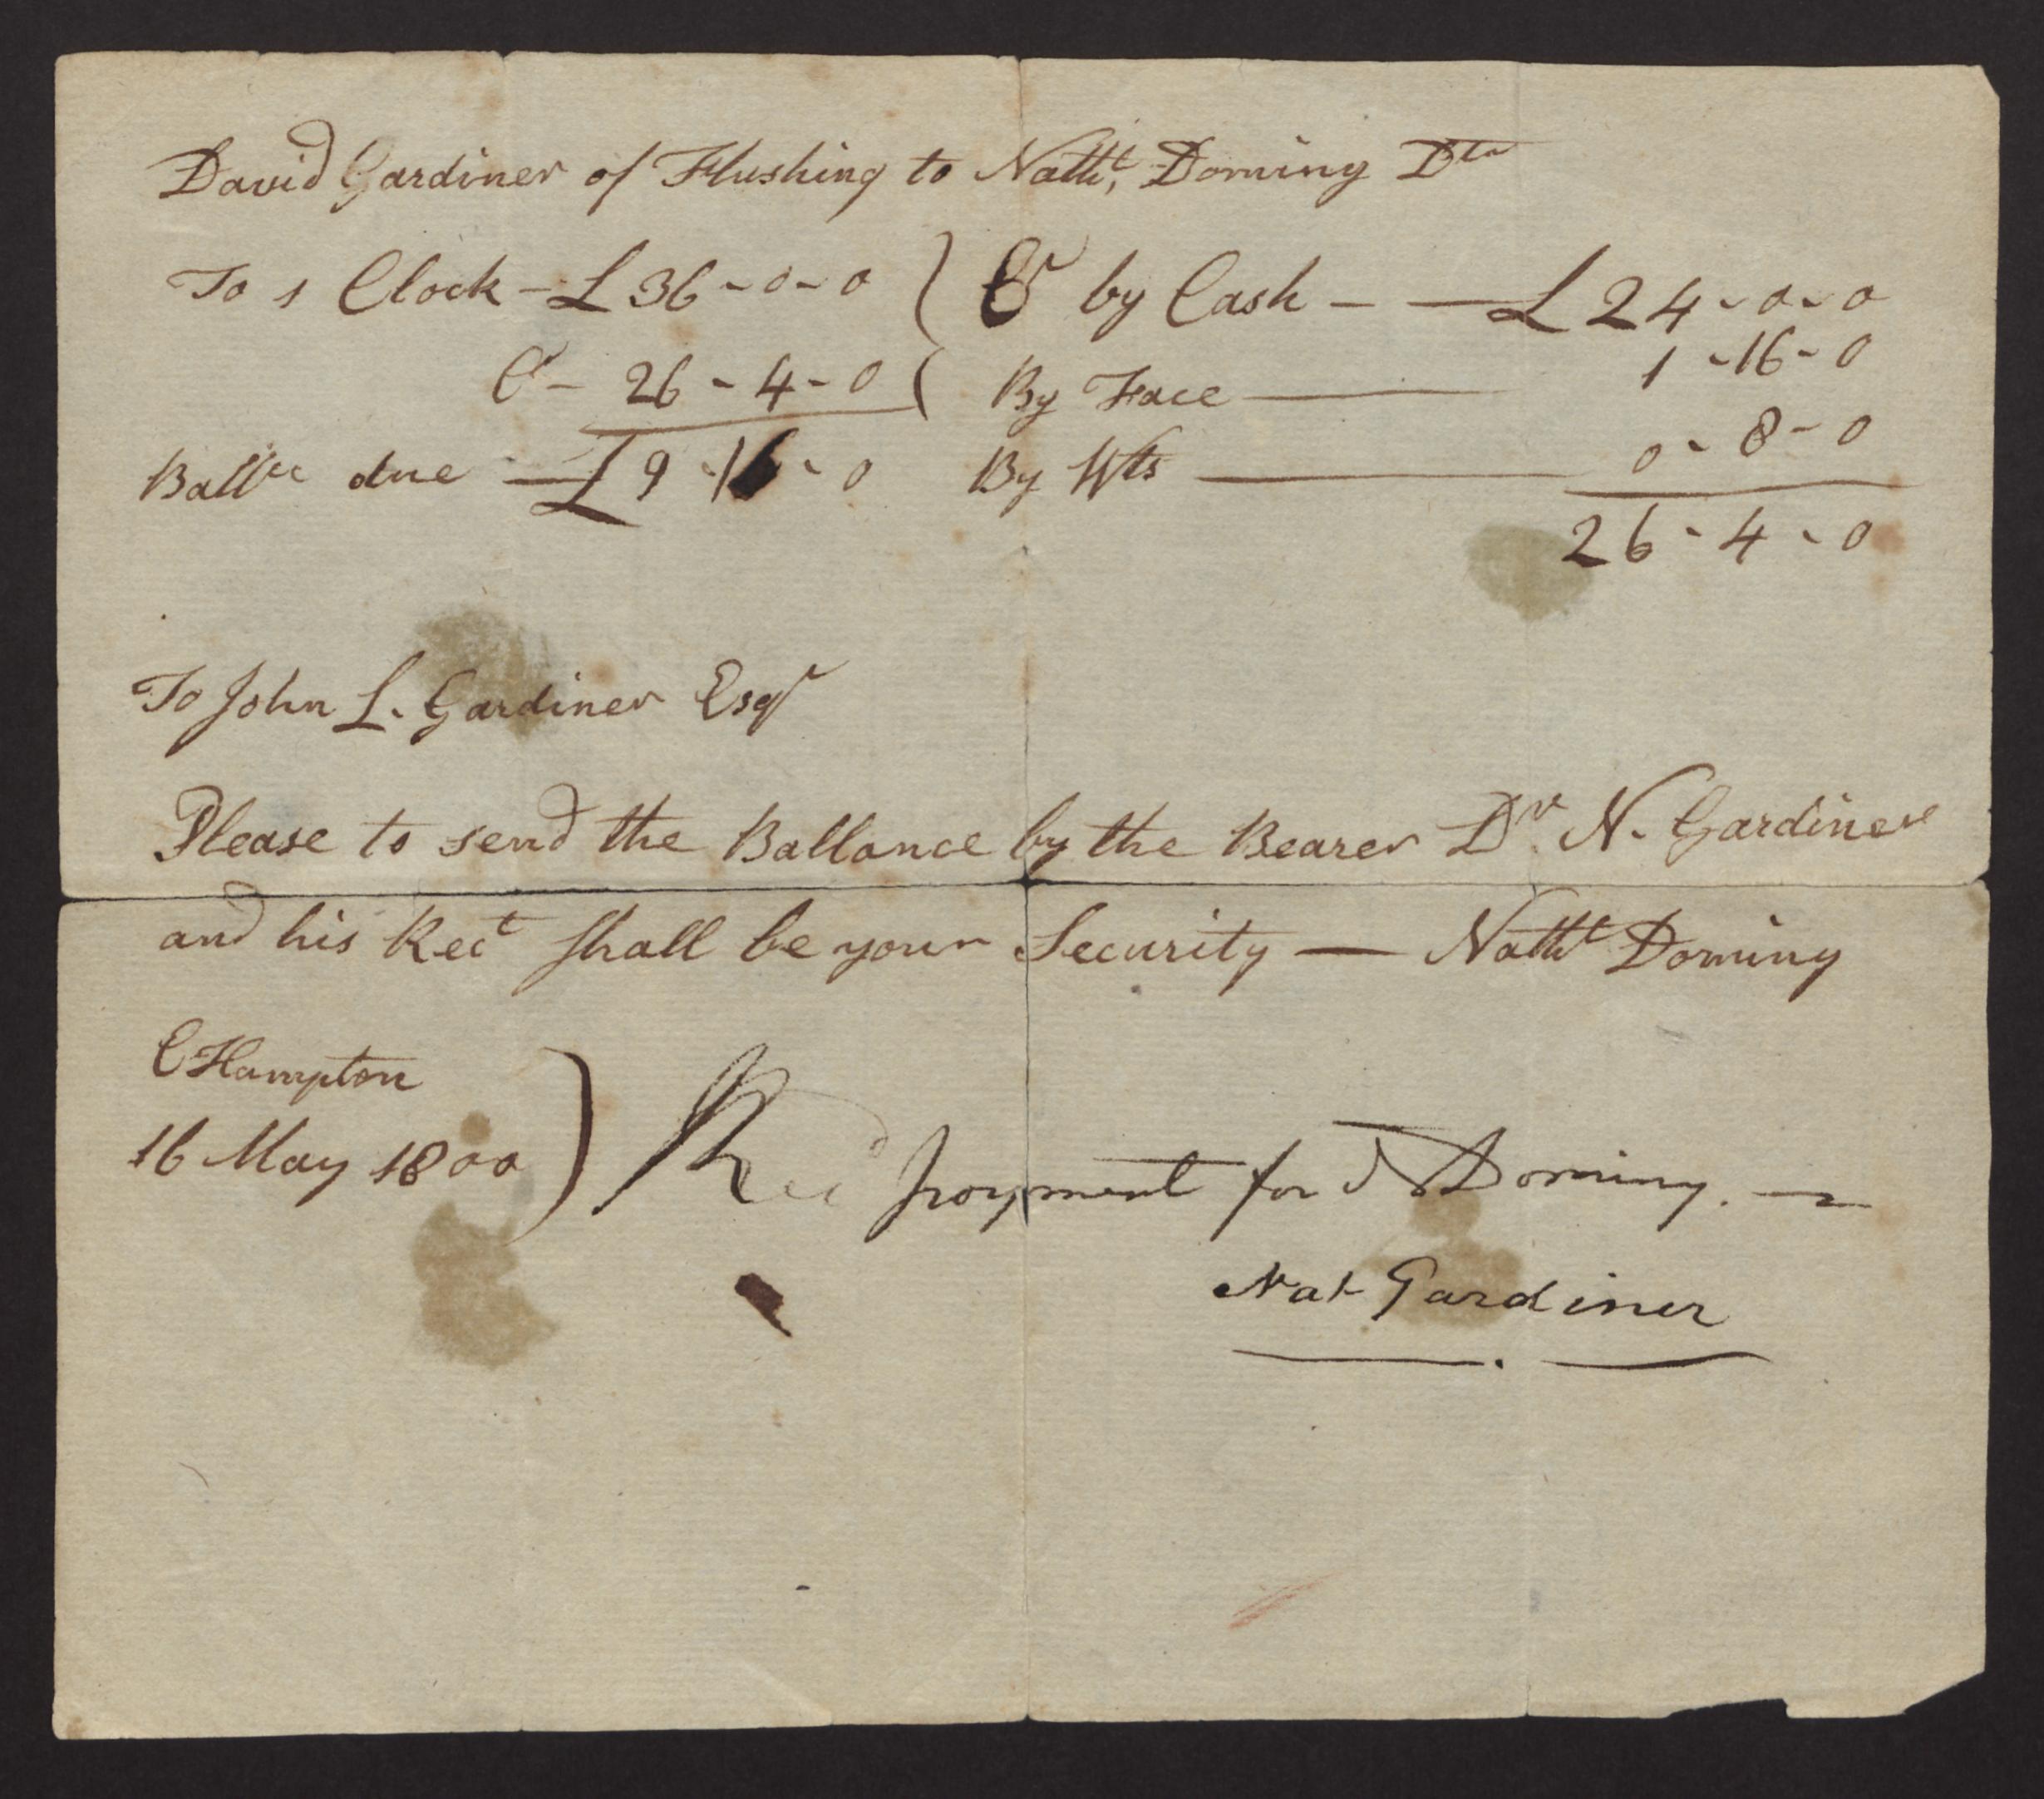 David Gardiner of Flushing to Nathl, Dominy Dtr
To 1 Clock - £ 36 - 0 - 0 Cr by Cash - - £ 24 - 0 - 0
Cr - 26 - 4 - 0 By Face 1 - 16 - 0
Ballce due - £ 9 - 16 - 0 By Wts 0 - 8 - 0
26 - 4 - 0
To John L. Gardiner Esqr
Please to send the Ballance by the Bearer Dr. N. Gardiner
and his Rect shall be your Security — Nathl Dominy
EHampton
16 May 1800
Recd payment for N Dominy. —
Nat Gardiner